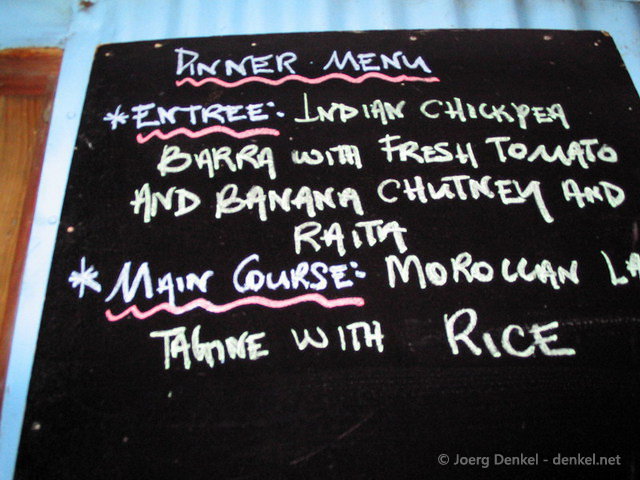 DINNER MENU
*ENTREE: INDIAN CHICKPEA
BARRA WITH FRESH TOMATO
AND BANANA CHUTNEY AND
RAITA
*MAIN COURSE: MOROCCAN LA
TAGINE WITH RICE
© Joerg Denkel - denkel.net